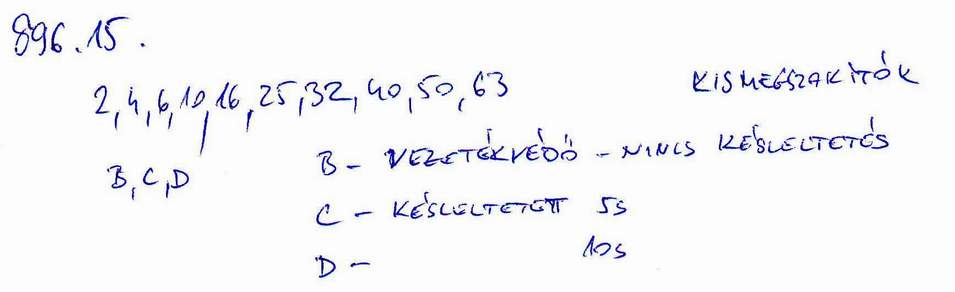 896.15.
2,4,6,10,16,25,32,40,50,63 KISMEGSZAKÍTÓK
B,C,D B – VEZETÉKVÉDŐ – NINCS KÉSLELTETÉS
C – KÉSLELTETETT 5s
D – 10s